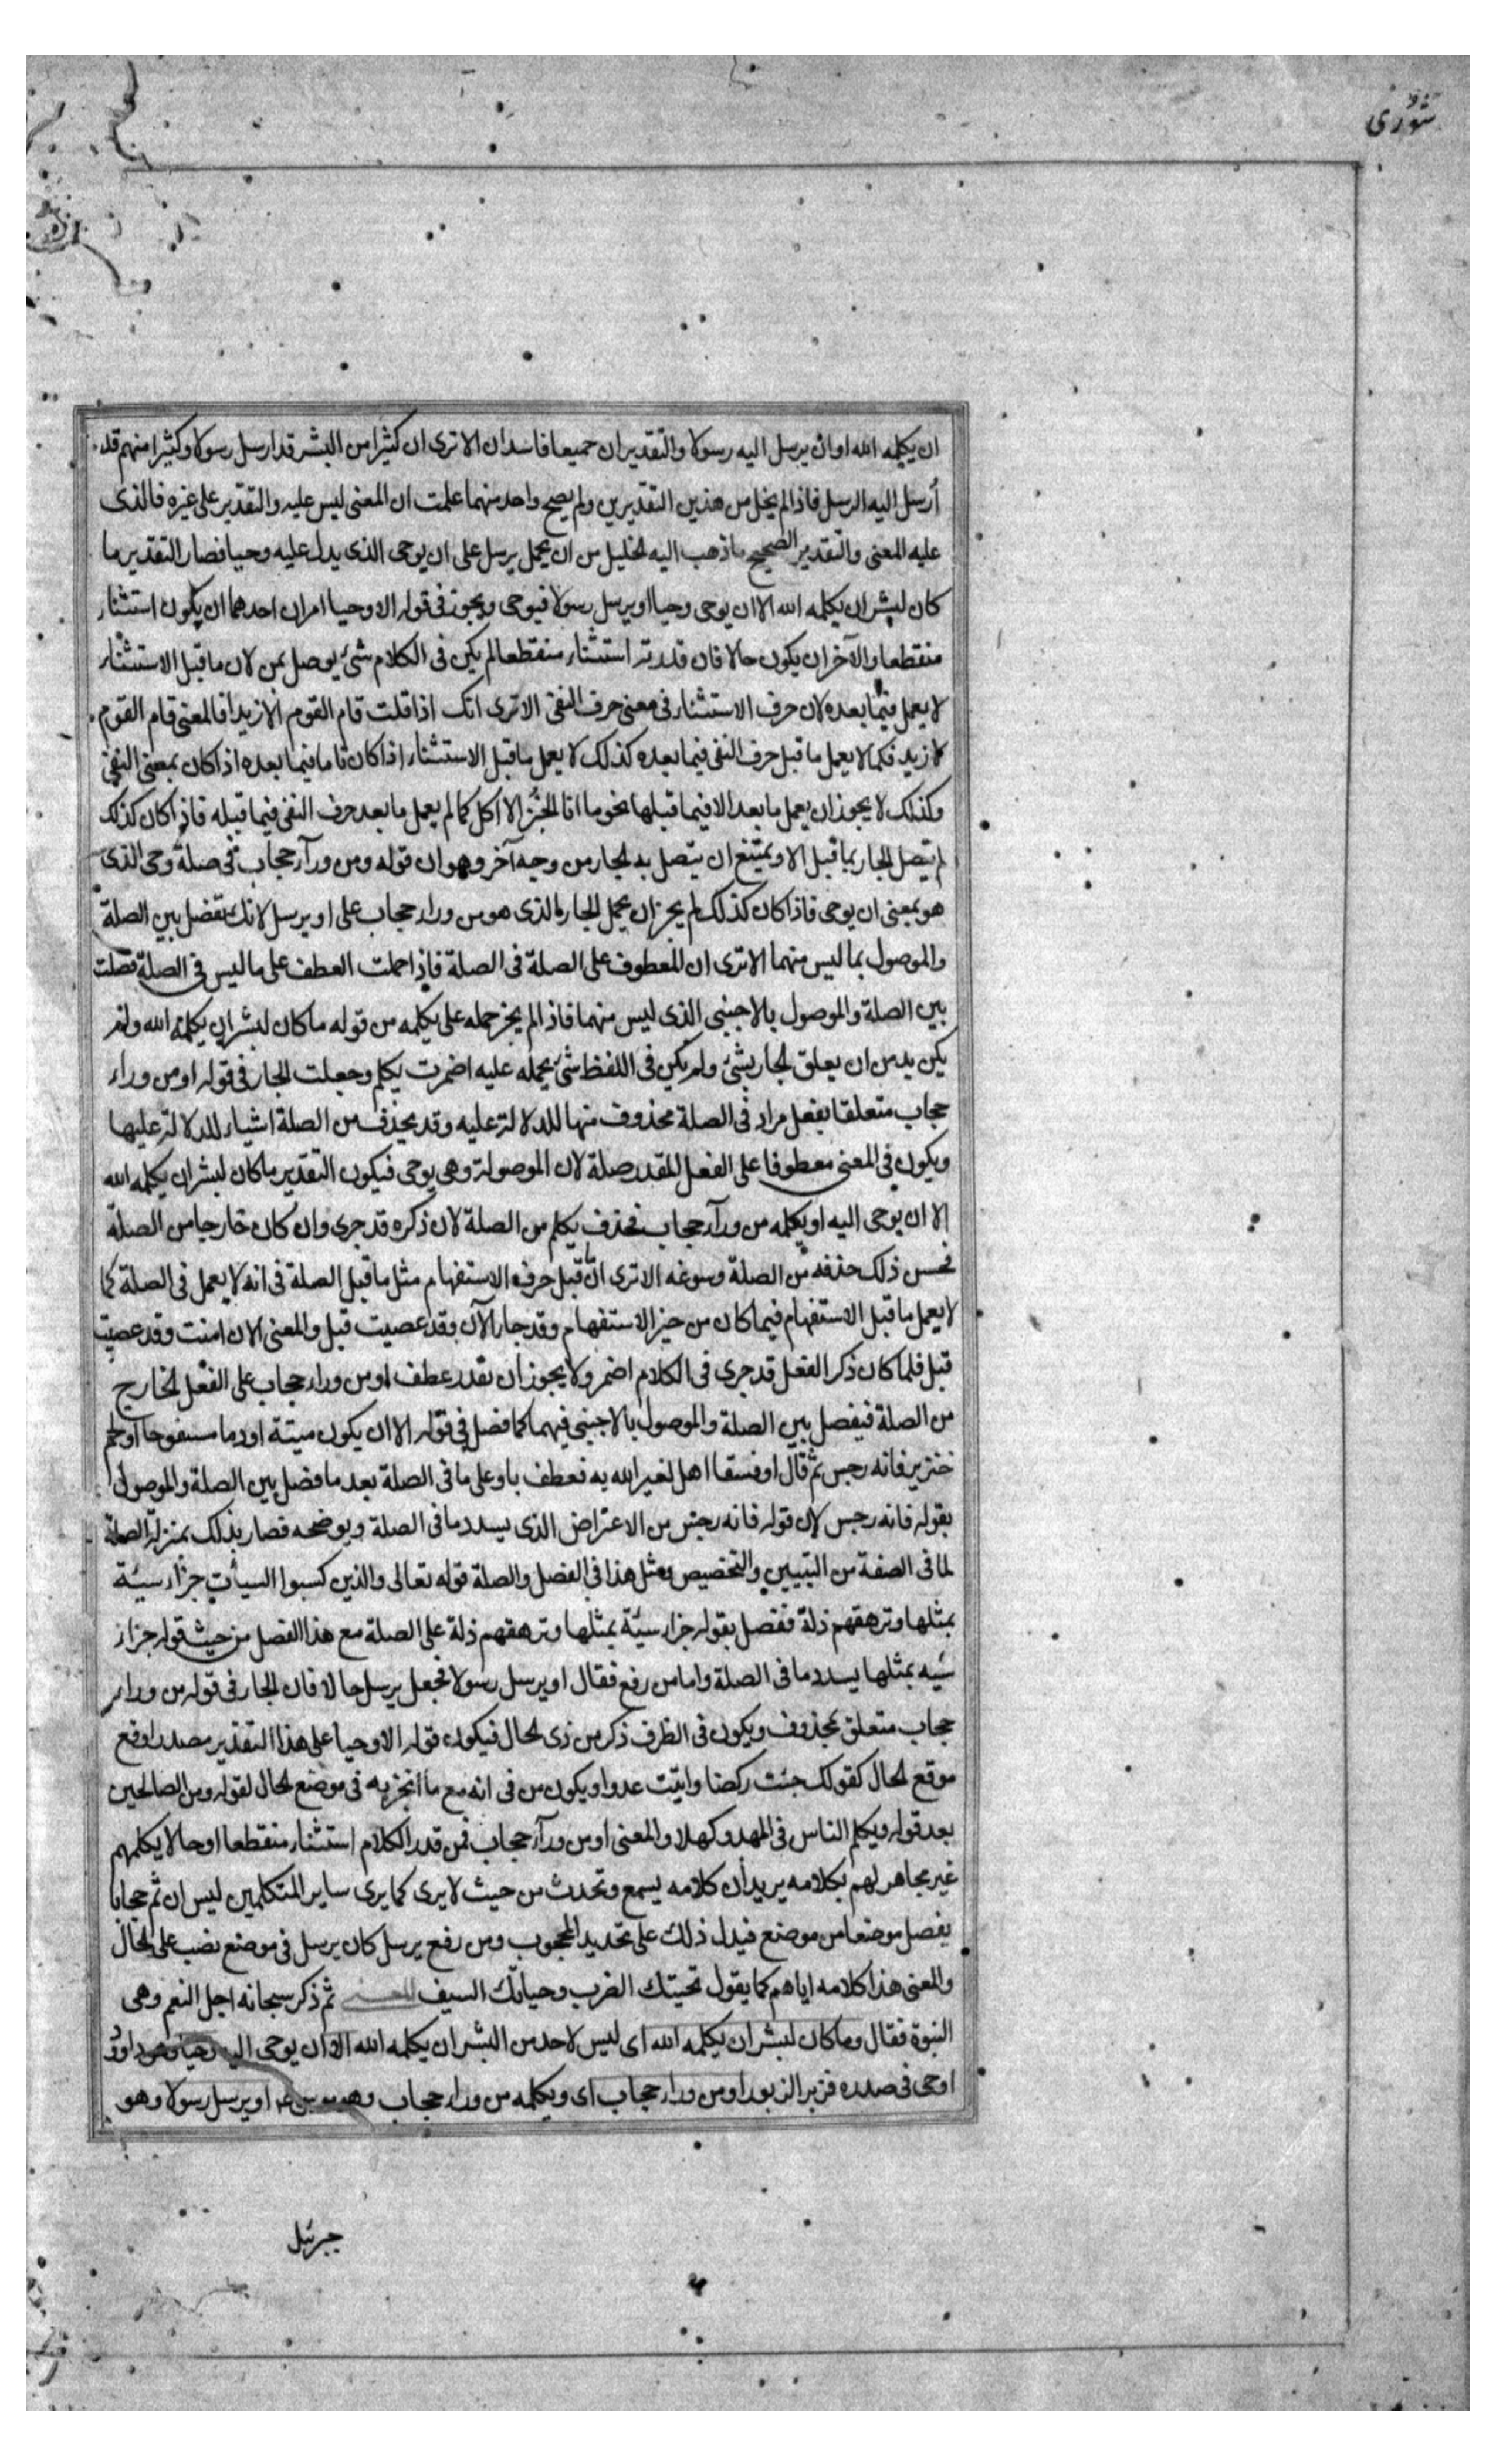 شورى
ان يكلمه الله او ان يرسل اليه رسولا والتقديران جميعا فاسدان الا ترى ان كثيرا من البشر قد ارسل رسولا وكثيرا منهم قد
أرسل اليه الرسل فاذا لم يخل من هذين التقديرين ولم يصح واحد منهما علمت ان المعنى ليس عليه والتقدير على غيره فالذى
عليه المعنى والتقدير الصحيح ماذهب اليه الخليل من ان يحمل يرسل على ان يوحى الذى يدل عليه وحيا فصار التقدير ما
كان لبشر ان يكلمه الله الا ان يوحى وحيا او يرسل رسولا فيوحى ويجوز فى قوله الا وحيا امران احدهما ان يكون استثناء
منقطعا والآخر ان يكون حالا فان قدرته استثناء منقطعا لم يكن فى الكلام شئ يوصل بمن لان ما قبل الاستثناء
لا يعمل فيما بعده لان حرف الاستثناء فى معنى حرف النفى الا ترى انك اذا قلت قام القوم الا زيدا فالمعنى قام القوم
لا زيد فكما لا يعمل ما قبل حرف النفى فيما بعده كذلك لا يعمل ما قبل الاستثناء اذا كان تاما فيما بعده اذا كان بمعنى النفى
وكذلك لا يجوز ان يعمل ما بعد الا فيما قبلها نحو ما انا الخبز الا اكل كما لم يعمل ما بعد حرف النفى فيما قبله فاذا كان كذلك
لم يتصل الجار بما قبل الا ويمتنع ان يتصل به الجار من وجه آخر وهو ان قوله ومن ورآء حجاب فى صلة وحى الذى
هو بمعنى ان يوحى فاذا كان كذلك لم يجز ان يحمل الجار الذى هو من وراء حجاب على او يرسل لانك تفصل بين الصلة
والموصول بما ليس منهما الا ترى ان المعطوف على الصلة فى الصلة فاذا حملت العطف على ما ليس فى الصلة فصلت
بين الصلة والموصول بالاجنبى الذى ليس منهما فاذا لم يجز حمله على يكلمه من قوله ما كان لبشر ان يكلمه الله ولم
يكن بد من ان يعلق الجار بشئ ولم يكن فى اللفظ شئ يحمله عليه اضمرت يكلم وجعلت الجار فى قوله او من وراء
حجاب متعلقا بفعل مراد فى الصلة محذوف منها للدلالة عليه وقد يحذف من الصلة اشياء للدلالة عليها
ويكون فى المعنى معطوفا على الفعل المقدر صلة لان الموصولة وهى يوحى فيكون التقدير ما كان لبشر ان يكلمه الله
الا ان يوحى اليه او يكلمه من ورآء حجاب فحذف يكلم من الصلة لان ذكره قد جرى وان كان خارجا من الصلة
فحسن ذلك حذفه من الصلة وسوغه الا ترى ان ما قبل حرف الاستفهام مثل ما قبل الصلة فى انه لا يعمل فى الصلة كما
لا يعمل ما قبل الاستفهام فيما كان من حيز الاستفهام وقد جاء الآن وقد عصيت قبل والمعنى الان امنت وقد عصيت
قبل فلما كان ذكر الفعل قد جرى فى الكلام اضمر ولا يجوز ان تقدر عطف او من وراء حجاب على الفعل الخارج
من الصلة فيفصل بين الصلة والموصول بالاجنبى فيهما كما فصل فى قوله الا ان يكون ميتة او دما مسفوحا او لحم
خنزير فانه رجس ثم قال او فسقا اهل لغير الله به فعطف باو على ما فى الصلة بعد ما فصل بين الصلة والموصول
بقوله فانه رجس لان قوله فانه رجس من الاعتراض الذى يسدد ما فى الصلة ويوضحه فصار بذلك بمنزلة الصلة
لما فى الصفة من التبيين والتخصيص ومثل هذا فى الفصل والصلة قوله تعالى والذين كسبوا السيأت جزآء سيئة
بمثلها وترهقهم ذلة ففصل بقوله جزاء سيئة بمثلها وترهقهم ذلة على الصلة مع هذا الفصل من حيث قوله جزاء
سيئه بمثلها يسدد ما فى الصلة واما من رفع فقال او يرسل رسولا فجعل يرسل حالا فان الجار فى قوله من وراء
حجاب متعلق بمحذوف ويكون فى الظرف ذكر من ذى الحال فيكون قوله الا وحيا على هذا التقدير مصدرا وقع
موقع الحال كقولك جئت ركضا واتيت عدوا ويكون من فى انه مع ما انجر به فى موضع الحال لقوله ومن الصالحين
بعد قوله ويكلم الناس فى المهد وكهلا والمعنى او من ورآء حجاب فمن قدر الكلام استثناء منقطعا او حالا يكلمهم
غير مجاهر لهم بكلامه يريد ان كلامه يسمع وتحدث من حيث لا يرى كما يرى ساير المتكلمين ليس ان ثم حجابا
يفصل موضعا من موضع فيدل ذلك على تحديد المحجوب ومن رفع يرسل كان يرسل فى موضع نصب على الحال
والمعنى هذا كلامه اياهم كما يقول تحيتك الضرب وحياتك السيف المعنى ثم ذكر سبحانه اجل النعم وهى
النبوة فقال وما كان لبشر ان يكلمه الله اى ليس لاحد من البشر ان يكلمه الله الا ان يوحى اليه وحيا وهو داود
اوحى فى صدره فزبر الزبور او من وراء حجاب اى ويكلمه من وراء حجاب وهو موسى ع او يرسل رسولا وهو
جبرئيل